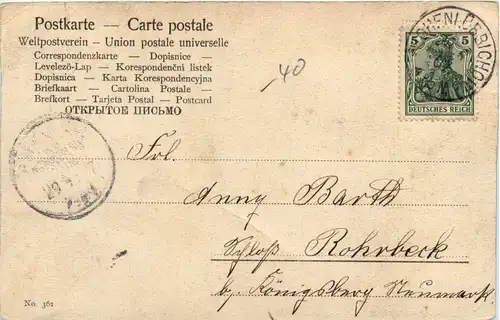 Postkarte — Carte postale
Weltpostverein — Union postale universelle
Correspondenzkarte — Dopisnice —
Levelező-Lap — Korespondenční listek
Dopisnica — Karta Korespondencyjna
Briefkaart — Cartolina Postale —
Brefkort — Tarjeta Postal — Postcard
ОТКРЫТОЕ ПИСЬМО
-40
5 5
DEUTSCHES REICH
Frl.
Anny Barth
Schloß Rohrbeck
b/ Königsberg Neumark.
No. 361